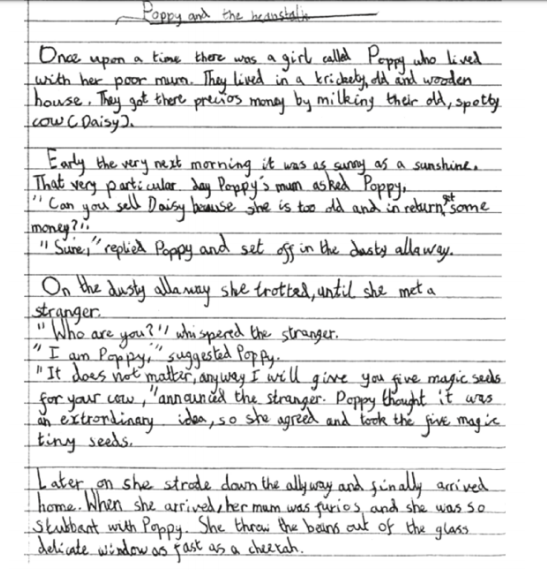 Poppy and the beanstalk
Once upon a time there was a girl called Poppy who lived
with her poor mum. They lived in a krickety, old and wooden
house. They got there precios money by milking their old, spotty
cow (Daisy).
Early the very next morning it was as sunny as a sunshine.
That very particular day Poppy's mum asked Poppy,
"Can you sell Daisy because she is too old and in return, get some
money?"
"Sure," replied Poppy and set off in the dusty allaway.
On the dusty allaway she trotted, until she met a
stranger.
"Who are you?" whispered the stranger.
"I am Poppy," suggested Poppy.
"It does not matter, anyway I will give you five magic seeds
for your cow, "announced the stranger. Poppy thought it was
an extrordinary idea, so she agreed and took the five magic
tiny seeds.
Later on she strode down the allyway and finally arrived
home. When she arrived, her mum was furios, and she was so
stubbant with Poppy. She throw the beans out of the glass
delicate window as fast as a cheetah.